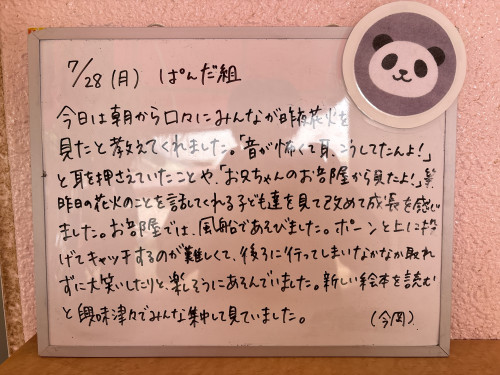 7/28(月) ぱんだ組
今日は朝から口々にみんなが昨夜花火を
見たと教えてくれました。「音が怖くて耳、こうしてたんよ！」
と耳を押さえていたことや、「お兄ちゃんのお部屋から見たよ！」
昨日の花火のことを話してくれる子ども達を見て改めて成長を感じ
ました。お部屋では、風船であそびました。ポーンと上に投
げてキャッチするのが難しくて、後ろに行ってしまいなかなか取れ
ずに大笑いしたりと、楽しそうにあそんでいました。新しい絵本を読む
と興味津々でみんな集中して見ていました。
(今岡)